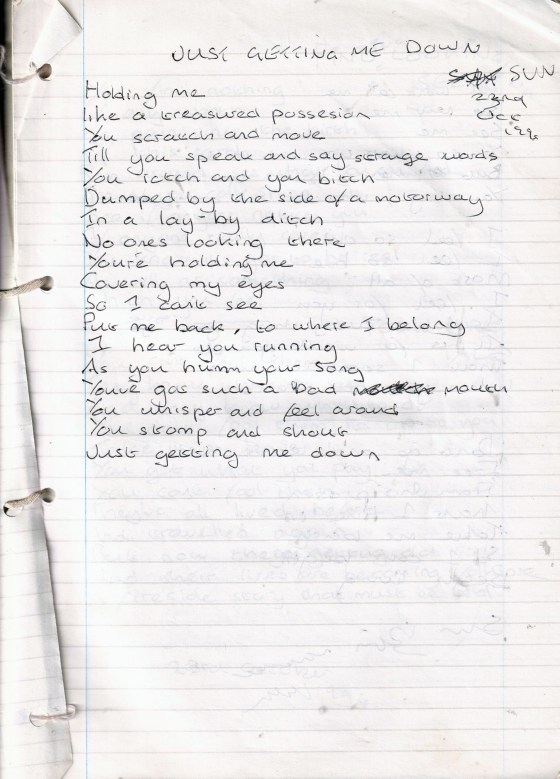 JUST GETTING ME DOWN
SUN
22nd
Oct
Holding me
like a treasured possesion
You scratch and move
Till you speak and say strange words
You itch and you bitch
Dumped by the side of a motorway
In a lay-by ditch
No ones looking there
You're holding me
Covering my eyes
So I can't see
Put me back, to where I belong
I hear you running
As you humm your song
You've got such a bad mouth
You whisper and feel around
You stomp and shout
Just getting me down